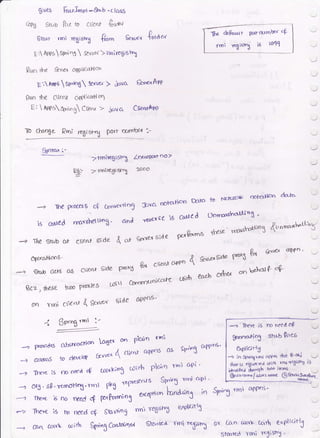 gives FourImpl-Stub-class
copy Stub file to client folder
Start rmi registry from Server folder
E:\Apps\Spring\Server> rmiregistry
The default port number of
rmi registry is 1099
Run the Server application
E:\Apps\Spring\Server> java ServerApp
Run the client application
E:\Apps\Spring\Client> java ClientApp
To change Rmi registry port number :-
Syntax :-
>rmiregistry <newport no>
Eg:- >rmiregistry 2000
→ The process of converting Java notation Data to Network notation data
is called marshalling. and reverse is called Unmarshalling.
→ The stub at client side & at Server side performs these marshalling & unmarshalling
operations.
→ Stub acts as client side proxy for client appn & Server side proxy for Server appn.
Bcz, these two proxies will communicate with each other on behalf of
on rmi client & Server side appns.
Spring rmi :-
→ provides abstraction layer on plain rmi
→ allows to develop Server & client appns as Spring appns.
→ There is no need of working with plain rmi api.
→ org.sf.remoting.rmi pkg represents Spring rmi api.
→ There is no need of performing exception handling in Spring rmi appns.
→ There is no need of Starting rmi registry explicitly
→ Can work with Spring Container Started rmi registry or can work with explicitly
started rmi registry.
→ There is no need of
generating stub files
explicitly
→ In Spring rmi appn the